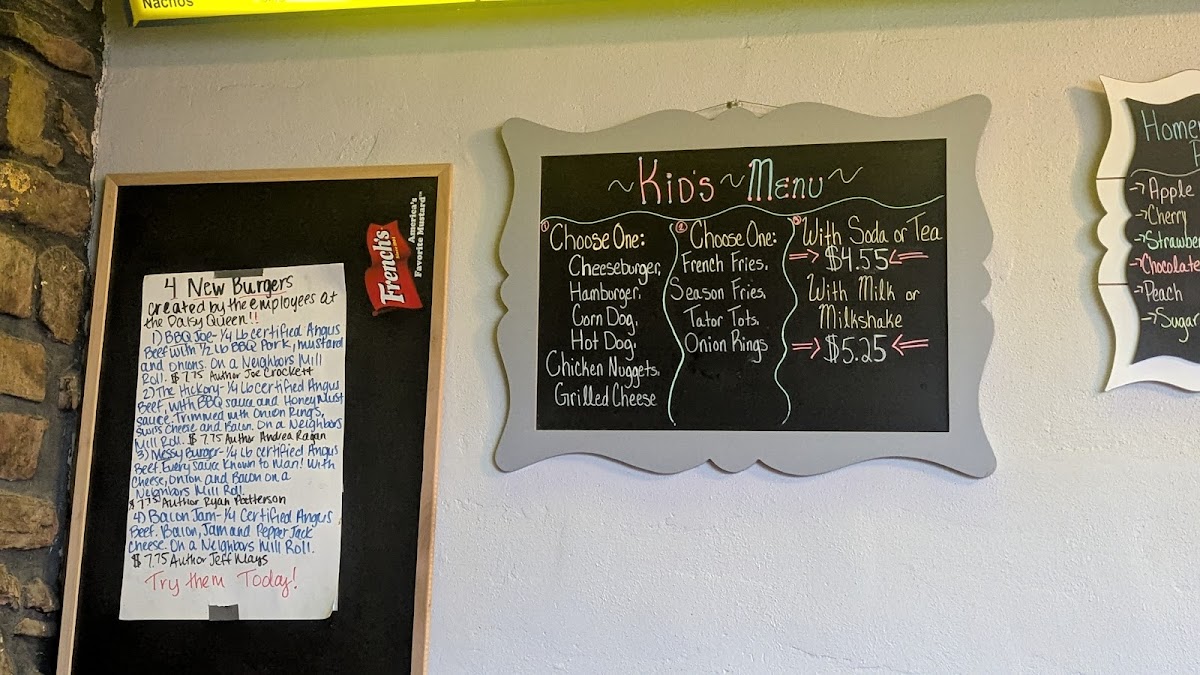 Nachos
French's
America's
Favorite Mustard™
4 New Burgers
created by the employees at
the Daisy Queen!!
1) BBQ Joe-1/4 Lb certified Angus
Beef with 1/2 lb BBQ Pork, mustard
and onions. On a Neighbors Mill
Roll. $7.75 Author Joe Crockett
2) The Hickory-1/4 lb certified Angus
Beef, with BBQ sauce and Honey Must
sauce. Trimmed with Onion Rings,
Swiss cheese and Bacon. On a Neighbors
Mill Roll. $7.75 Author Andrea Ragan
3) Messy Burger-1/4 lb certified Angus
Beef. Every sauce known to man! With
cheese, onion and Bacon on a
Neighbors Mill Roll
$7.75 Author Ryan Patterson
4) Bacon Jam-1/4 Certified Angus
Beef. Bacon, Jam and Pepper Jack
cheese. On a Neighbors Mill Roll.
$7.75 Author Jeff Mays
Try them Today!
~Kid's~Menu~
① Choose One:
Cheeseburger,
Hamburger,
Corn Dog,
Hot Dog,
Chicken Nuggets,
Grilled Cheese
② Choose One:
French Fries,
Season Fries,
Tator Tots,
Onion Rings
③ With Soda or Tea
$4.55
With Milk or
Milkshake
$5.25
Apple
Cherry
Chocolate
Peach
Sugar